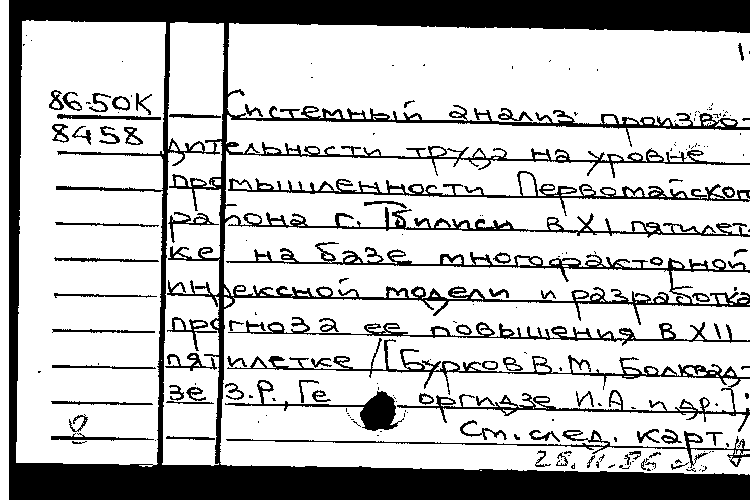 1.
86-50К Системный анализ произво-
8458 дительности труда на уровне
промышленности Первомайского
района г. Тбилиси в XI пятилет-
ке на базе многофакторной
индексной модели и разработка
прогноза ее повышения в XII
пятилетке /[Бурков В.М., Болквад-
зе З.Р., Ге оргидзе И.А. и др.];
8 Ст. след. карт.
28.11.86